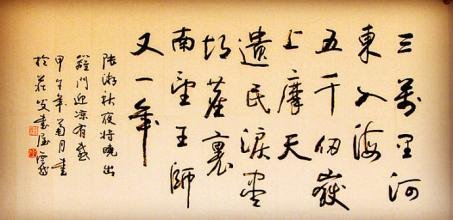 三万里河
东入海
五千仞岳
上摩天
遗民泪尽
胡尘里
南望王师
又一年
陆游秋夜将晓出
篱门迎凉有感
甲午年菊月书
于庄